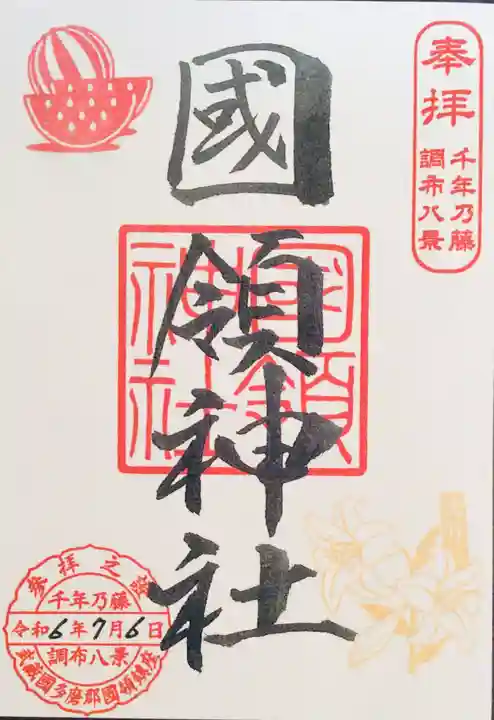 奉拝
千年乃藤
調布八景
國領神社
國領
神社
参拝之証
千年乃藤
令和6年7月6日
調布八景
武蔵國多磨郡國領鎮座